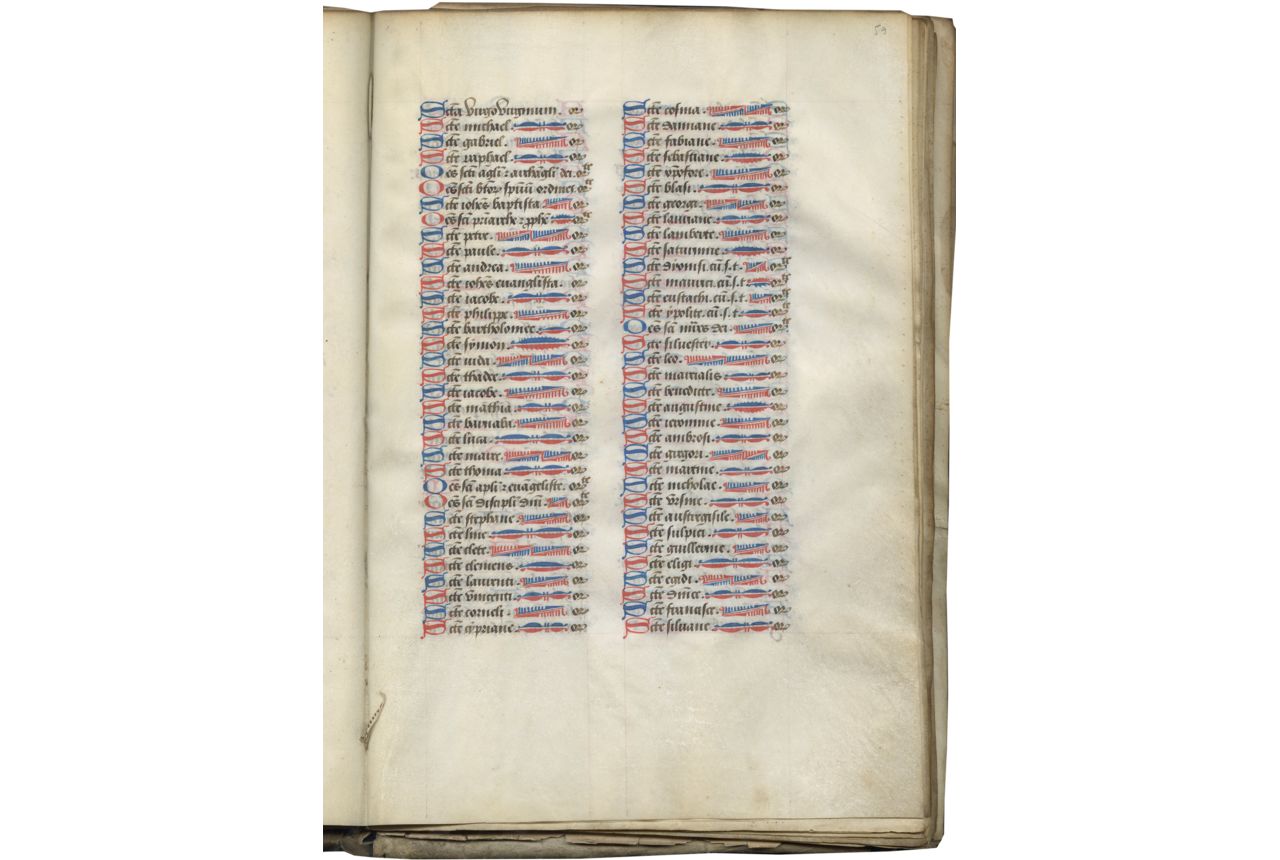 59
Scta Virgo Virginum. or
Scte michael. or
Scte gabriel. or
Scte raphael. or
Oēs scti agli ⁊ archāgli dei. orte
Oēs scti btor spirituū ordines. orte
Scte iohēs baptista or
Oēs scti pr̄iarche ⁊ pphe orte
Scte petre. or
Scte paule. or
Scte andrea. or
Scte iohēs euanglista.
Scte iacobe. or
Scte philippe. or
Scte bartholomee. or
Scte symon. or
Scte iuda. or
Scte thadee. or
Scte iacobe. or
Scte mathia. or
Scte barnaba. or
Scte luca. or
Scte marce. or
Scte thoma or
Oēs scti apli ⁊ euāgeliste. orte
Oēs scti discipli dni. orte
Scte stephane or
Scte line. or
Scte clete. or
Scte clemens. or
Scte laurenti. or
Scte vincenti. or
Scte corneli. or
Scte cypriane. or
Scte cosma. or
Scte damiane. or
Scte fabiane. or
Scte sebastiane. or
Scte xpofore. or
Scte blasi. or
Scte georgi. or
Scte lauriane. or
Scte lamberte. or
Scte saturnine. or
Scte dyonisi. cū. s. t. orte
Scte maurici. cū. s. t. orte
Scte eustachi. cū. s. t. orte
Scte ypolite. cū. s. t. orte
Oēs scti mr̄es dei. orte
Scte siluester. or
Scte leo. or
Scte marcialis. or
Scte benedicte. or
Scte augustine or
Scte ieronime. or
Scte ambrosi. or
Scte gregori. or
Scte martine. or
Scte nicholae. or
Scte vrsine. or
Scte austregisile. or
Scte sulpici. or
Scte guillerme. or
Scte eligi. or
Scte egidi. or
Scte dnice. or
Scte francisce. or
Scte siluane. or